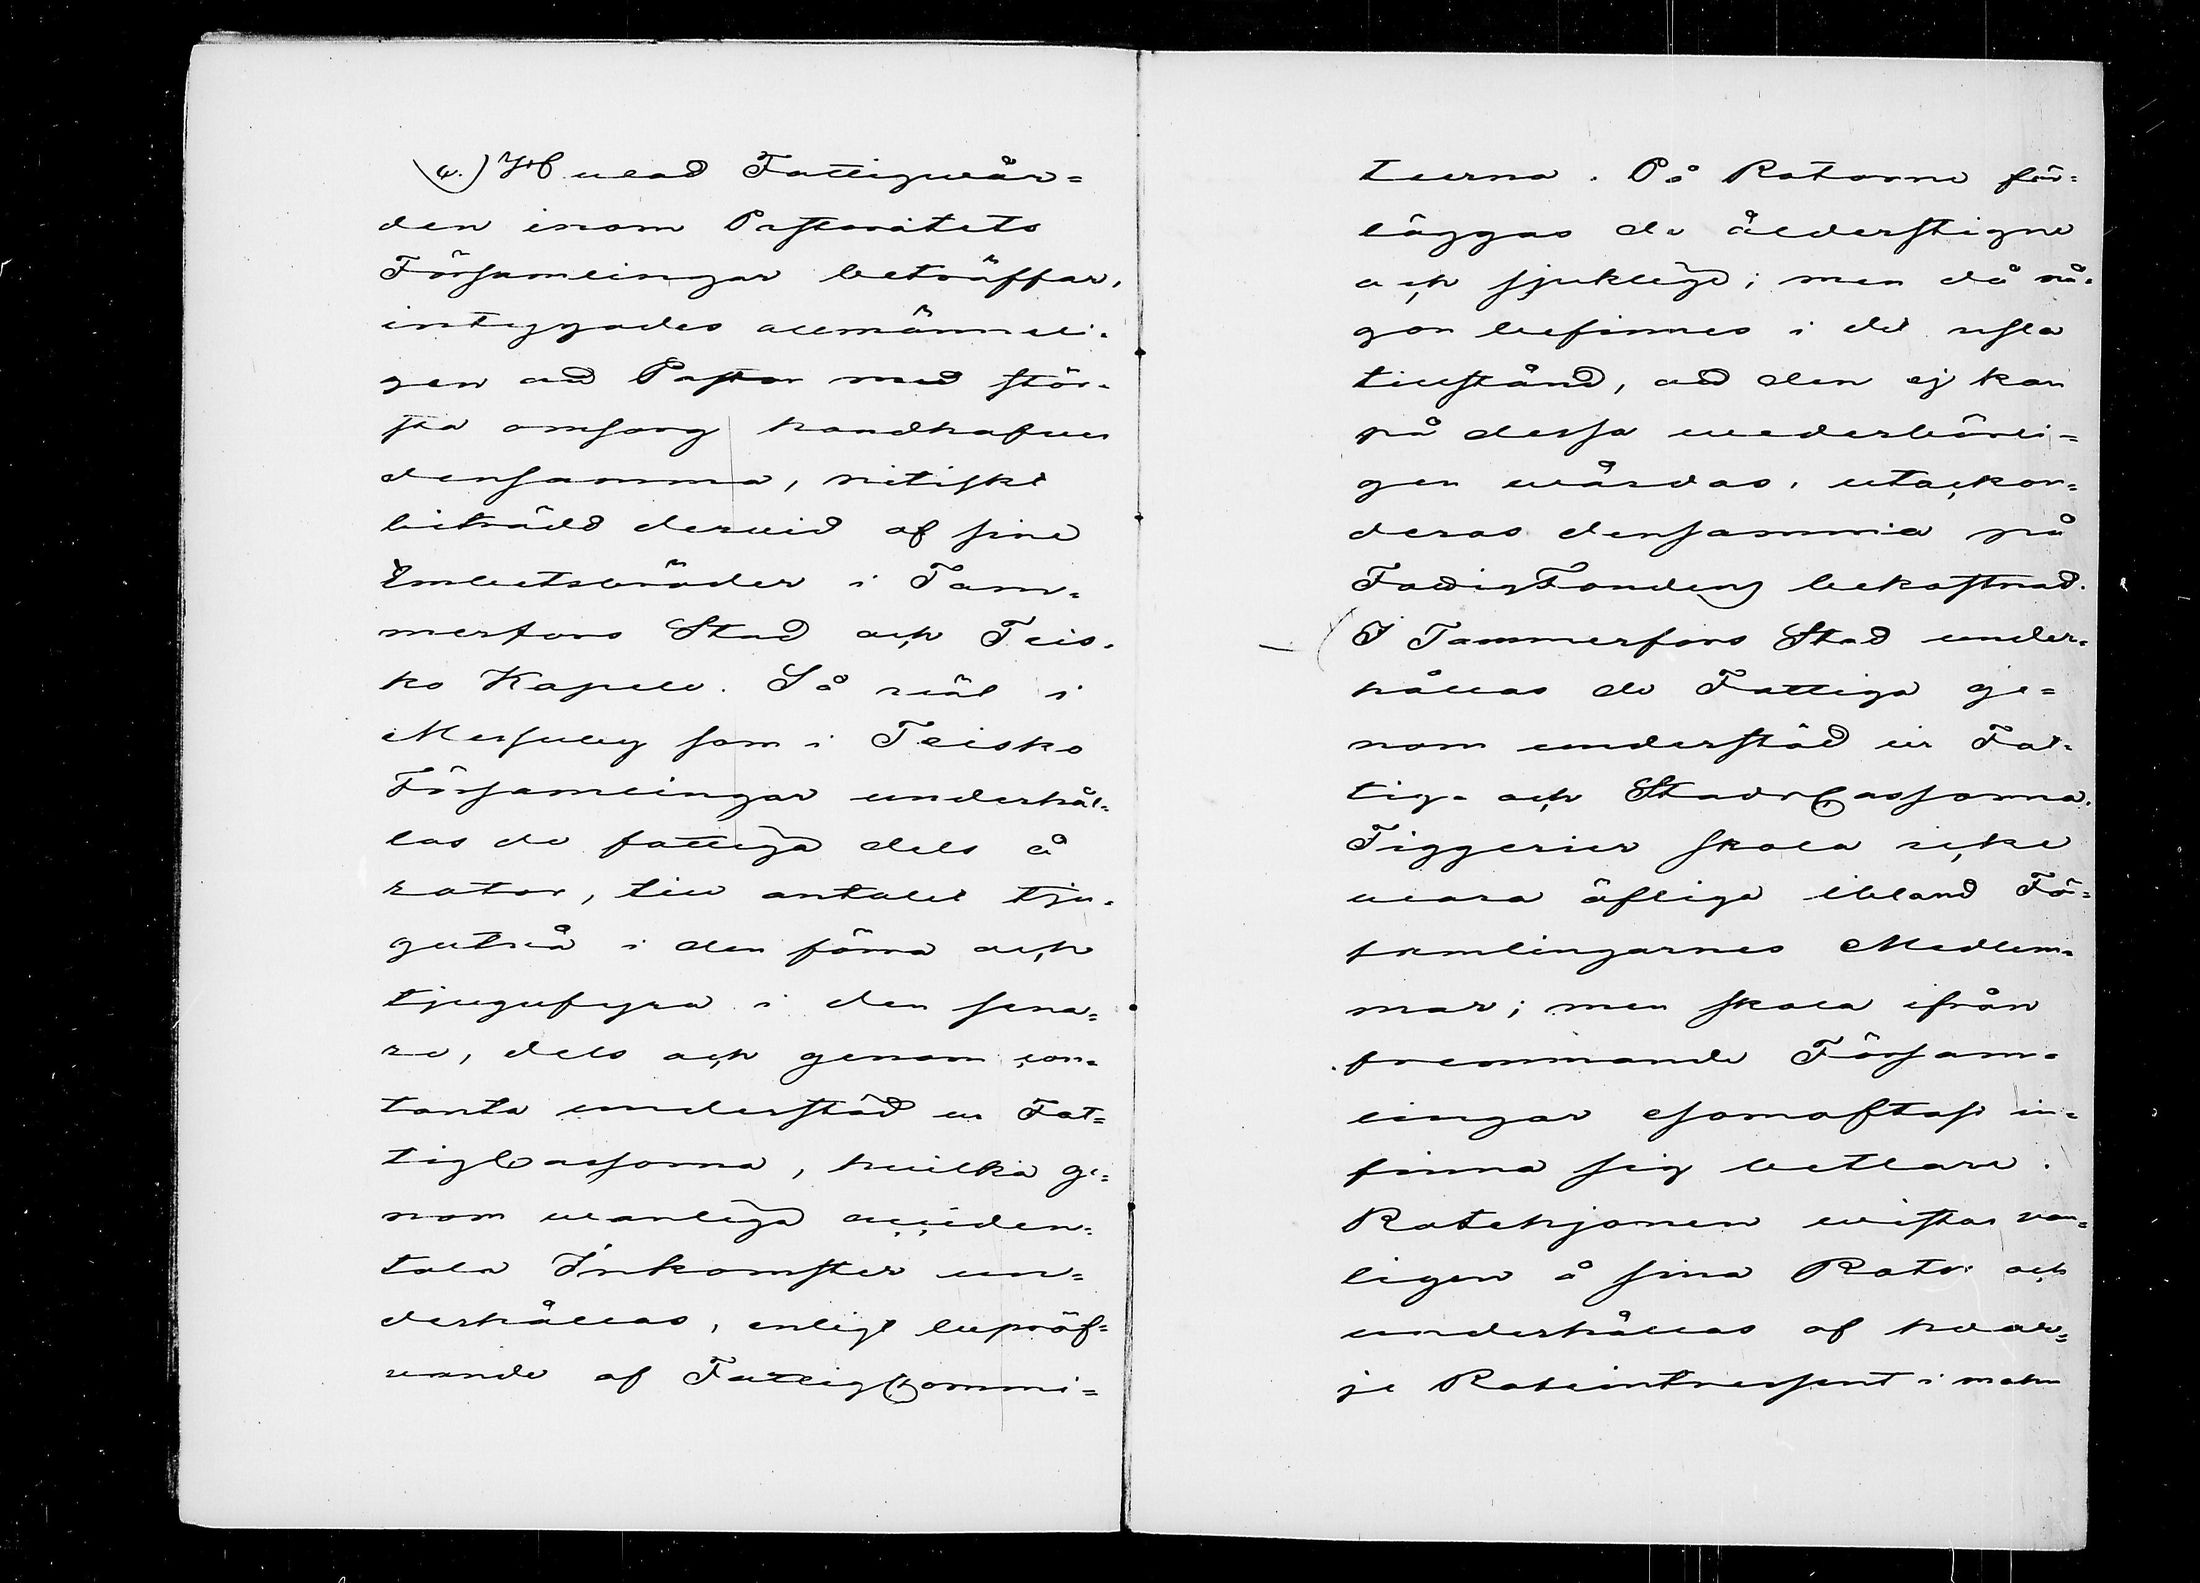 a.) Hvad Fattigvår=
den inom Pastoratets
Församlingar beträffar,
intygades allmänneli=
gen att Pastor med stör=
sta omsorg handhafver
densamma, nitiskt
biträdd dervid af sine
Embetsbröder i Tam=
merfors Stad och Teis=
ko Kapell. Så väl i
Messuby som i Teisko
Församlingar underhål=
las de fattiga dels å
rotor, till antalet tju=
gutvå i den förra och
tjugufyra i den sena=
re, dels och genom con=
tanta understöd ur Fat=
tigCassorna, hvilka ge=
nom vanliga acciden=
tala Inkomster un=
derhållas, enligt bepröf=
vande af FattigCommi=
teerna. På Rotorne för=
läggas de ålderstigne
och sjuklige; men då nå=
gon befinnes i det usla
tillstånd, att den ej kan
på dessa vederböri=
gen vårdas, utackor=
deras densamma på
FattigFondens bekostnad.
I Tammerfors Stad under=
hållas de Fattiga ge=
nom understöd ur Fat=
tig- och StadsCassorna.
Tiggerier skola icke
vara öfliga ibland För=
samlingarnes Medlem=
mar; men skola ifrån
fremmande Försam=
lingar esomoftast in=
finna sig betlare.
Rotehjonen vistas van=
ligen å sina Rotor och
underhållas af hvar=
je Roteintressent i mohn